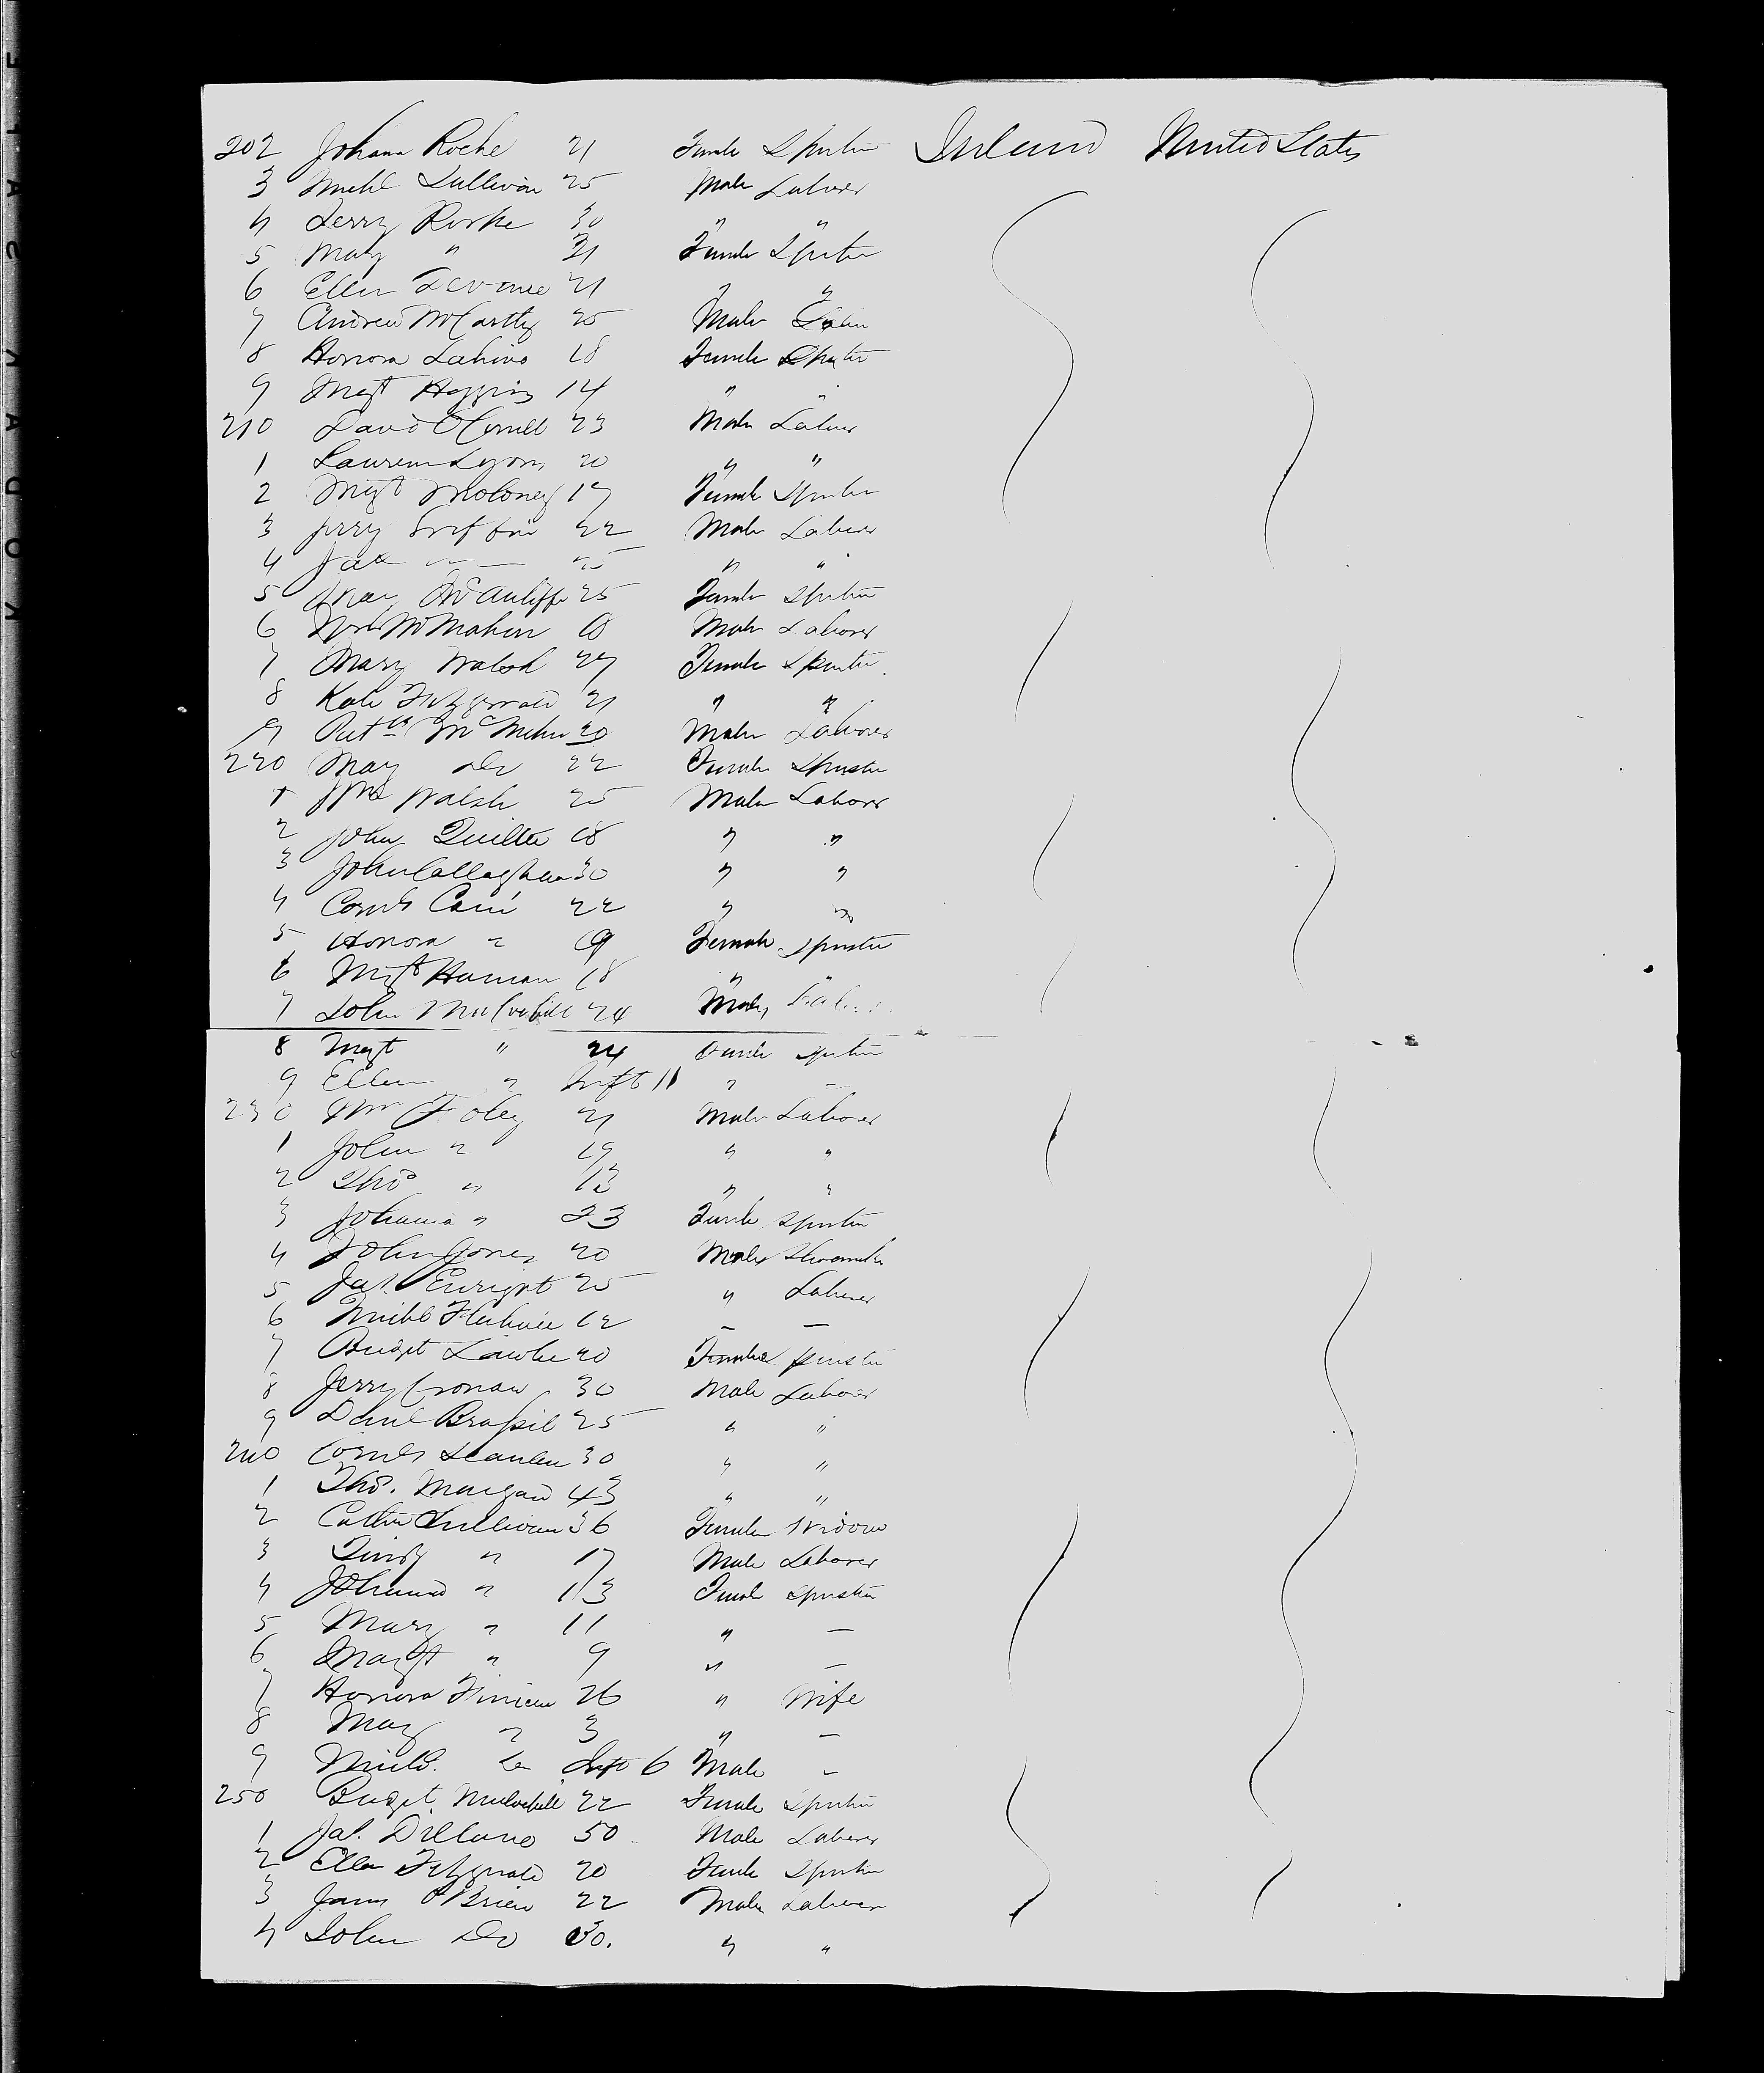 202 Johana Roche 21 Female Spinster Ireland United States
3 Michl Sullivan 25 Male Laborer
4 Jerry Rorke 30 " "
5 Mary " 21 Female Spinster
6 Ellen 21 " "
7 Andrew McCarthy 25 Male Labor
8 Honora 18 Female Spinster
9 Magt Higgins 14 " "
210 David O'Connell 23 Male Laborer
1 Laurence Lyons 20 " "
2 Magt Moloney 17 Female Spinster
3 Jerry Griffin 22 Male Laborer
4 " 25 " "
5 Mary McAuliffe 25 Female Spinster
6 McMahon 18 Male Laborer
7 Mary Walsh 27 Female Spinster
8 Kate Fitzgerald 21 " "
9 Patk 20 Male Laborer
220 Mary Do 22 Female Spinster
1 Walsh 25 Male Laborer
2 John Quilter 18 " "
3 John Callaghan 30 " "
4 Corns Cain 22 " "
5 Honora " 19 Female Spinster
6 Magt 18 " "
7 John Mulvihill 24 Male
8 Magt " 24 Female Spinster
9 Ellen " Inft 11 " -
230 Wm Foley 21 Male Laborer
1 John " 19 " "
2 Thos " 13 " "
3 Johanna " 23 Female Spinster
4 John Jones 20 Male Shoemaker
5 Jas. Enright 25 " Laborer
6 Michl 12 - -
7 Bridget Lawlor 20 Female Spinster
8 Jerry Cronan 30 Male Laborer
9 Danl Brassil 25 " "
240 Corns Scanlen 30 " "
1 Thos. Mangan 43 " "
2 Cathr Sullivan 36 Female Widow
3 Timthy " 17 Male Laborer
4 Johanna " 13 Female Spinster
5 Mary " 11 " -
6 Margt " 9 " -
7 Honora 26 " Wife
8 Mary " 3 " -
9 Michl. Do Inft 6 Male -
250 Bridget Mulvihill 22 Female Spinster
1 Jas. Dillane 50 Male Laborer
2 Ellen Fitzgerald 20 Female Spinster
3 James O'Brien 22 Male Laborer
4 John Do 30. " "